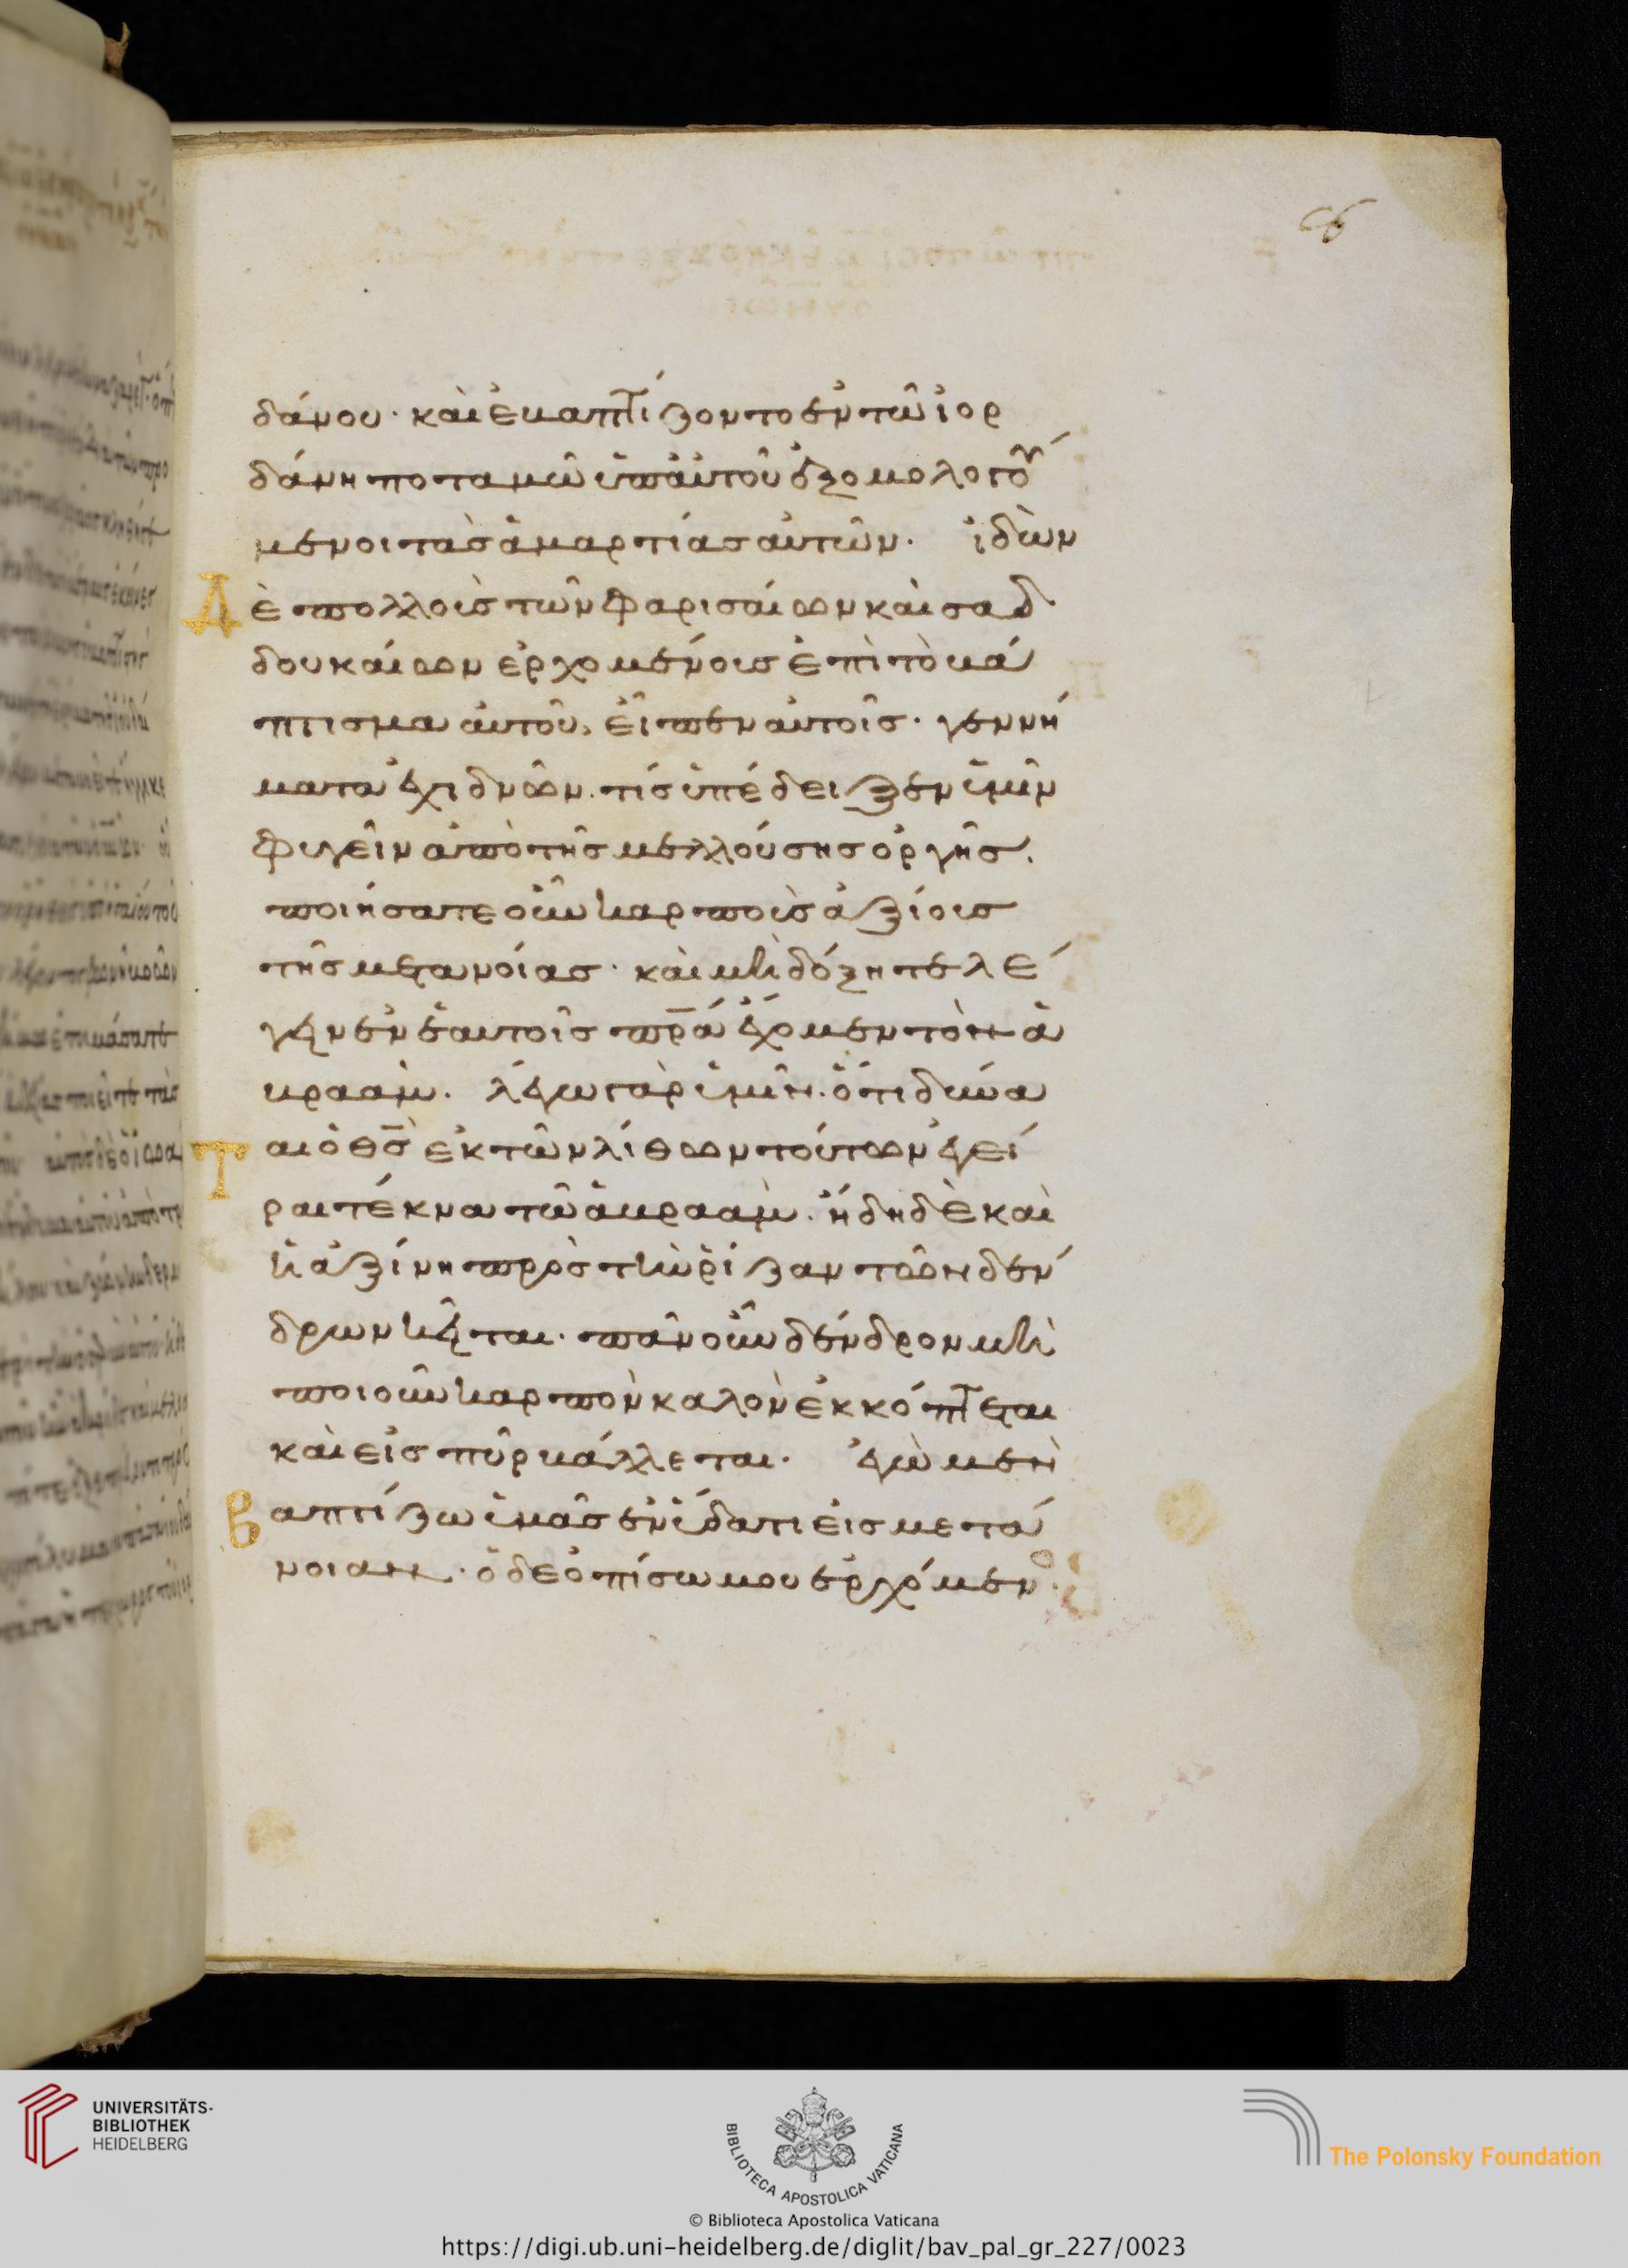 δάνου· καὶ ἐβαπτίζοντο ἐν τῶ ἰορ
δάνη ποταμῶ ὑπ᾽ αὐτοῦ ἐξομολογού
μενοι τὰσ ἁμαρτίασ αὐτῶν. ἰδὼν
Δὲ πολλοὺσ τῶν φαρισαίων καὶ σαδ
δουκαίων ἐρχομένουσ ἐπὶ τὸ βά
πτισμα αὐτοῦ, εἶπεν αὐτοῖσ· γεννή
ματα ἐχιδνῶν. τίσ ὑπέδειξεν ὑμῖν
φυγεῖν ἀπὸ τῆσ μελλούσησ ὀργῆσ.
ποιήσατε οὖν καρποὺσ ἀξίουσ
τῆσ μετανοίασ· καὶ μὴ δόξητε λέ
γειν ἐν ἑαυτοῖσ πρ̅α ἔχομεν τὸν ἀ
βραάμ. λέγω γὰρ ὑμῖν. ὅτι δύνα
Ται ὁ θσ̅ ἐκ τῶν λίθων τούτων ἐγεῖ
ραι τέκνα τῶ ἀβραάμ. ἤδη δὲ καὶ
ἡ ἀξίνη πρὸσ τὴν ῥίζαν τῶν δέν
δρων κεῖται. πᾶν οὖν δένδρον μὴ
ποιοῦν καρπὸν καλὸν ἐκκόπτεται
καὶ εἰσ πῦρ βάλλεται. ἐγὼ μὲν
Βαπτίζω ὑμᾶσ ἐν ὕδατι εἰσ μετά
νοιαν. ὁ δὲ ὀπίσω μου ἐρχόμεν
UNIVERSITÄTS-
BIBLIOTHEK
HEIDELBERG
BIBLIOTECA APOSTOLICA VATICANA
The Polonsky Foundation
© Biblioteca Apostolica Vaticana
https://digi.ub.uni-heidelberg.de/diglit/bav_pal_gr_227/0023